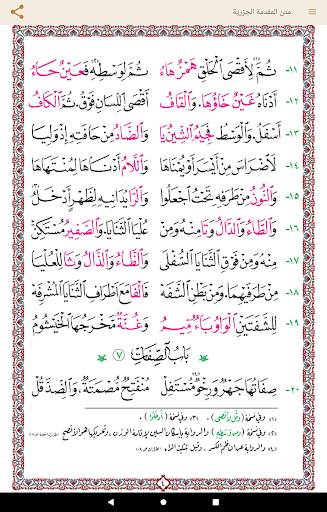 متن المقدمة الجزرية
١١- ثُمَّ لِأَقْصَى الْحَلْقِ هَمْزٌ هَاءُ ثُمَّ لِوَسْطِهِ فَعَيْنٌ حَاءُ
١٢- أَدْنَاهُ غَيْنٌ خَاؤُهَا، وَالْقَافُ أَقْصَى اللِّسَانِ فَوْقُ، ثُمَّ الْكَافُ
١٣- أَسْفَلُ، وَالْوَسْطُ فَجِيمُ الشِّينُ يَا وَالضَّادُ مِنْ حَافَتِهِ إِذْ وَلِيَا
١٤- لَاضْرَاسَ مِنْ أَيْسَرَ أَوْ يُمْنَاهَا وَاللَّامُ أَدْنَاهَا لِمُنْتَهَاهَا
١٥- وَالنُّونُ مِنْ طَرَفِهِ تَحْتُ اجْعَلُوا وَالرَّا يُدَانِيهِ لِظَهْرٍ أَدْخَلُ
١٦- وَالطَّاءُ وَالدَّالُ وَتَا مِنْهُ وَمِنْ عُلْيَا الثَّنَايَا، وَالصَّفِيرُ مُسْتَكِنْ
١٧- مِنْهُ وَمِنْ فَوْقِ الثَّنَايَا السُّفْلَى وَالظَّاءُ وَالذَّالُ وَثَا لِلْعُلْيَا
١٨- مِنْ طَرَفَيْهِمَا، وَمِنْ بَطْنِ الشَّفَهْ فَالْفَا مَعَ اطْرَافِ الثَّنَايَا الْمُشْرِفَهْ
١٩- لِلشَّفَتَيْنِ الْوَاوُ بَاءٌ مِيمُ وَغُنَّةٌ مَخْرَجُهَا الْخَيْشُومُ
بَابُ الصِّفَاتِ
٧
٢٠- صِفَاتُهَا جَهْرٌ وَرِخْوٌ مُسْتَفِلْ مُنْفَتِحٌ مُصْمَتَةٌ، وَالضِّدَّ قُلْ